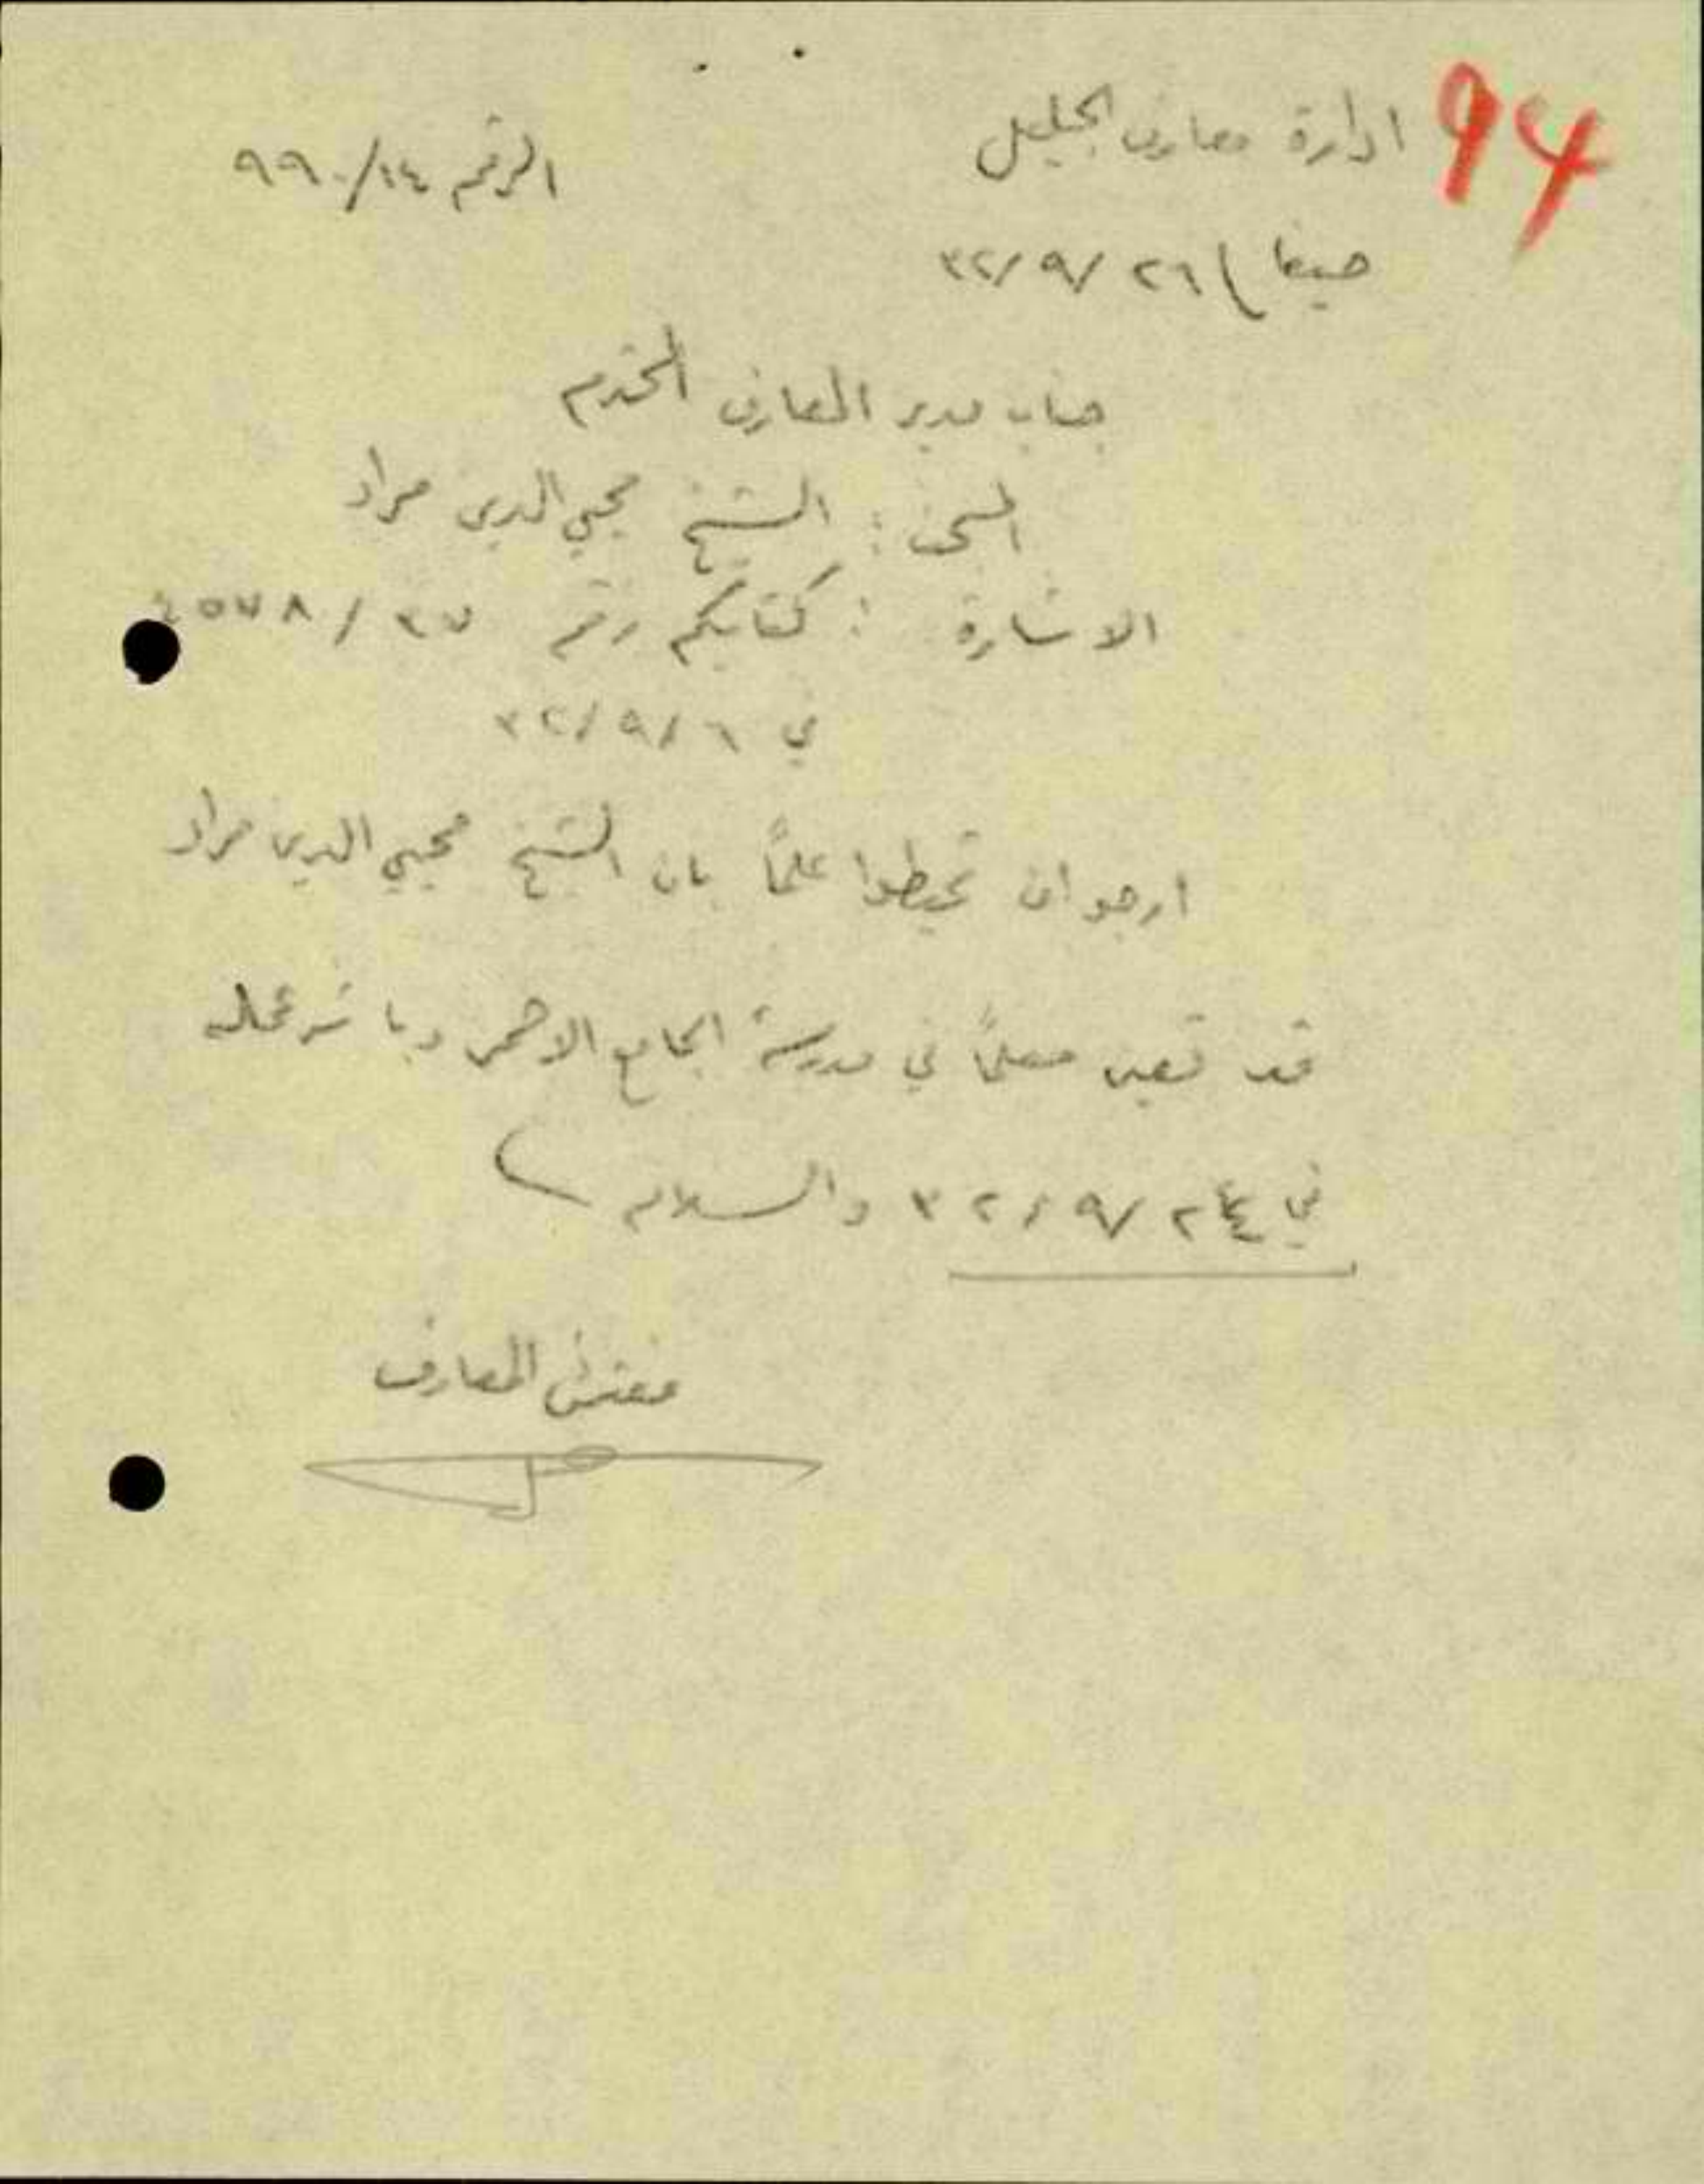 94
ادارة معارف الجليل
الرقم ١٤/٩٩٠
٣٢/٩/٢٦
جناب مدير المعارف المحترم
المبحث : الشيخ محيي الدين مراد
الاشارة : كتابكم رقم ٣٧/٤٥٧٨
في ٣٢/٩/٦
ارجو ان تحيطوا علماً بان الشيخ محيي الدين مراد
قد تعين معلماً في مدرسة الجامع الاحمر وباشر عمله
في ٣٢/٩/٢٤ والسلام
مفتش المعارف